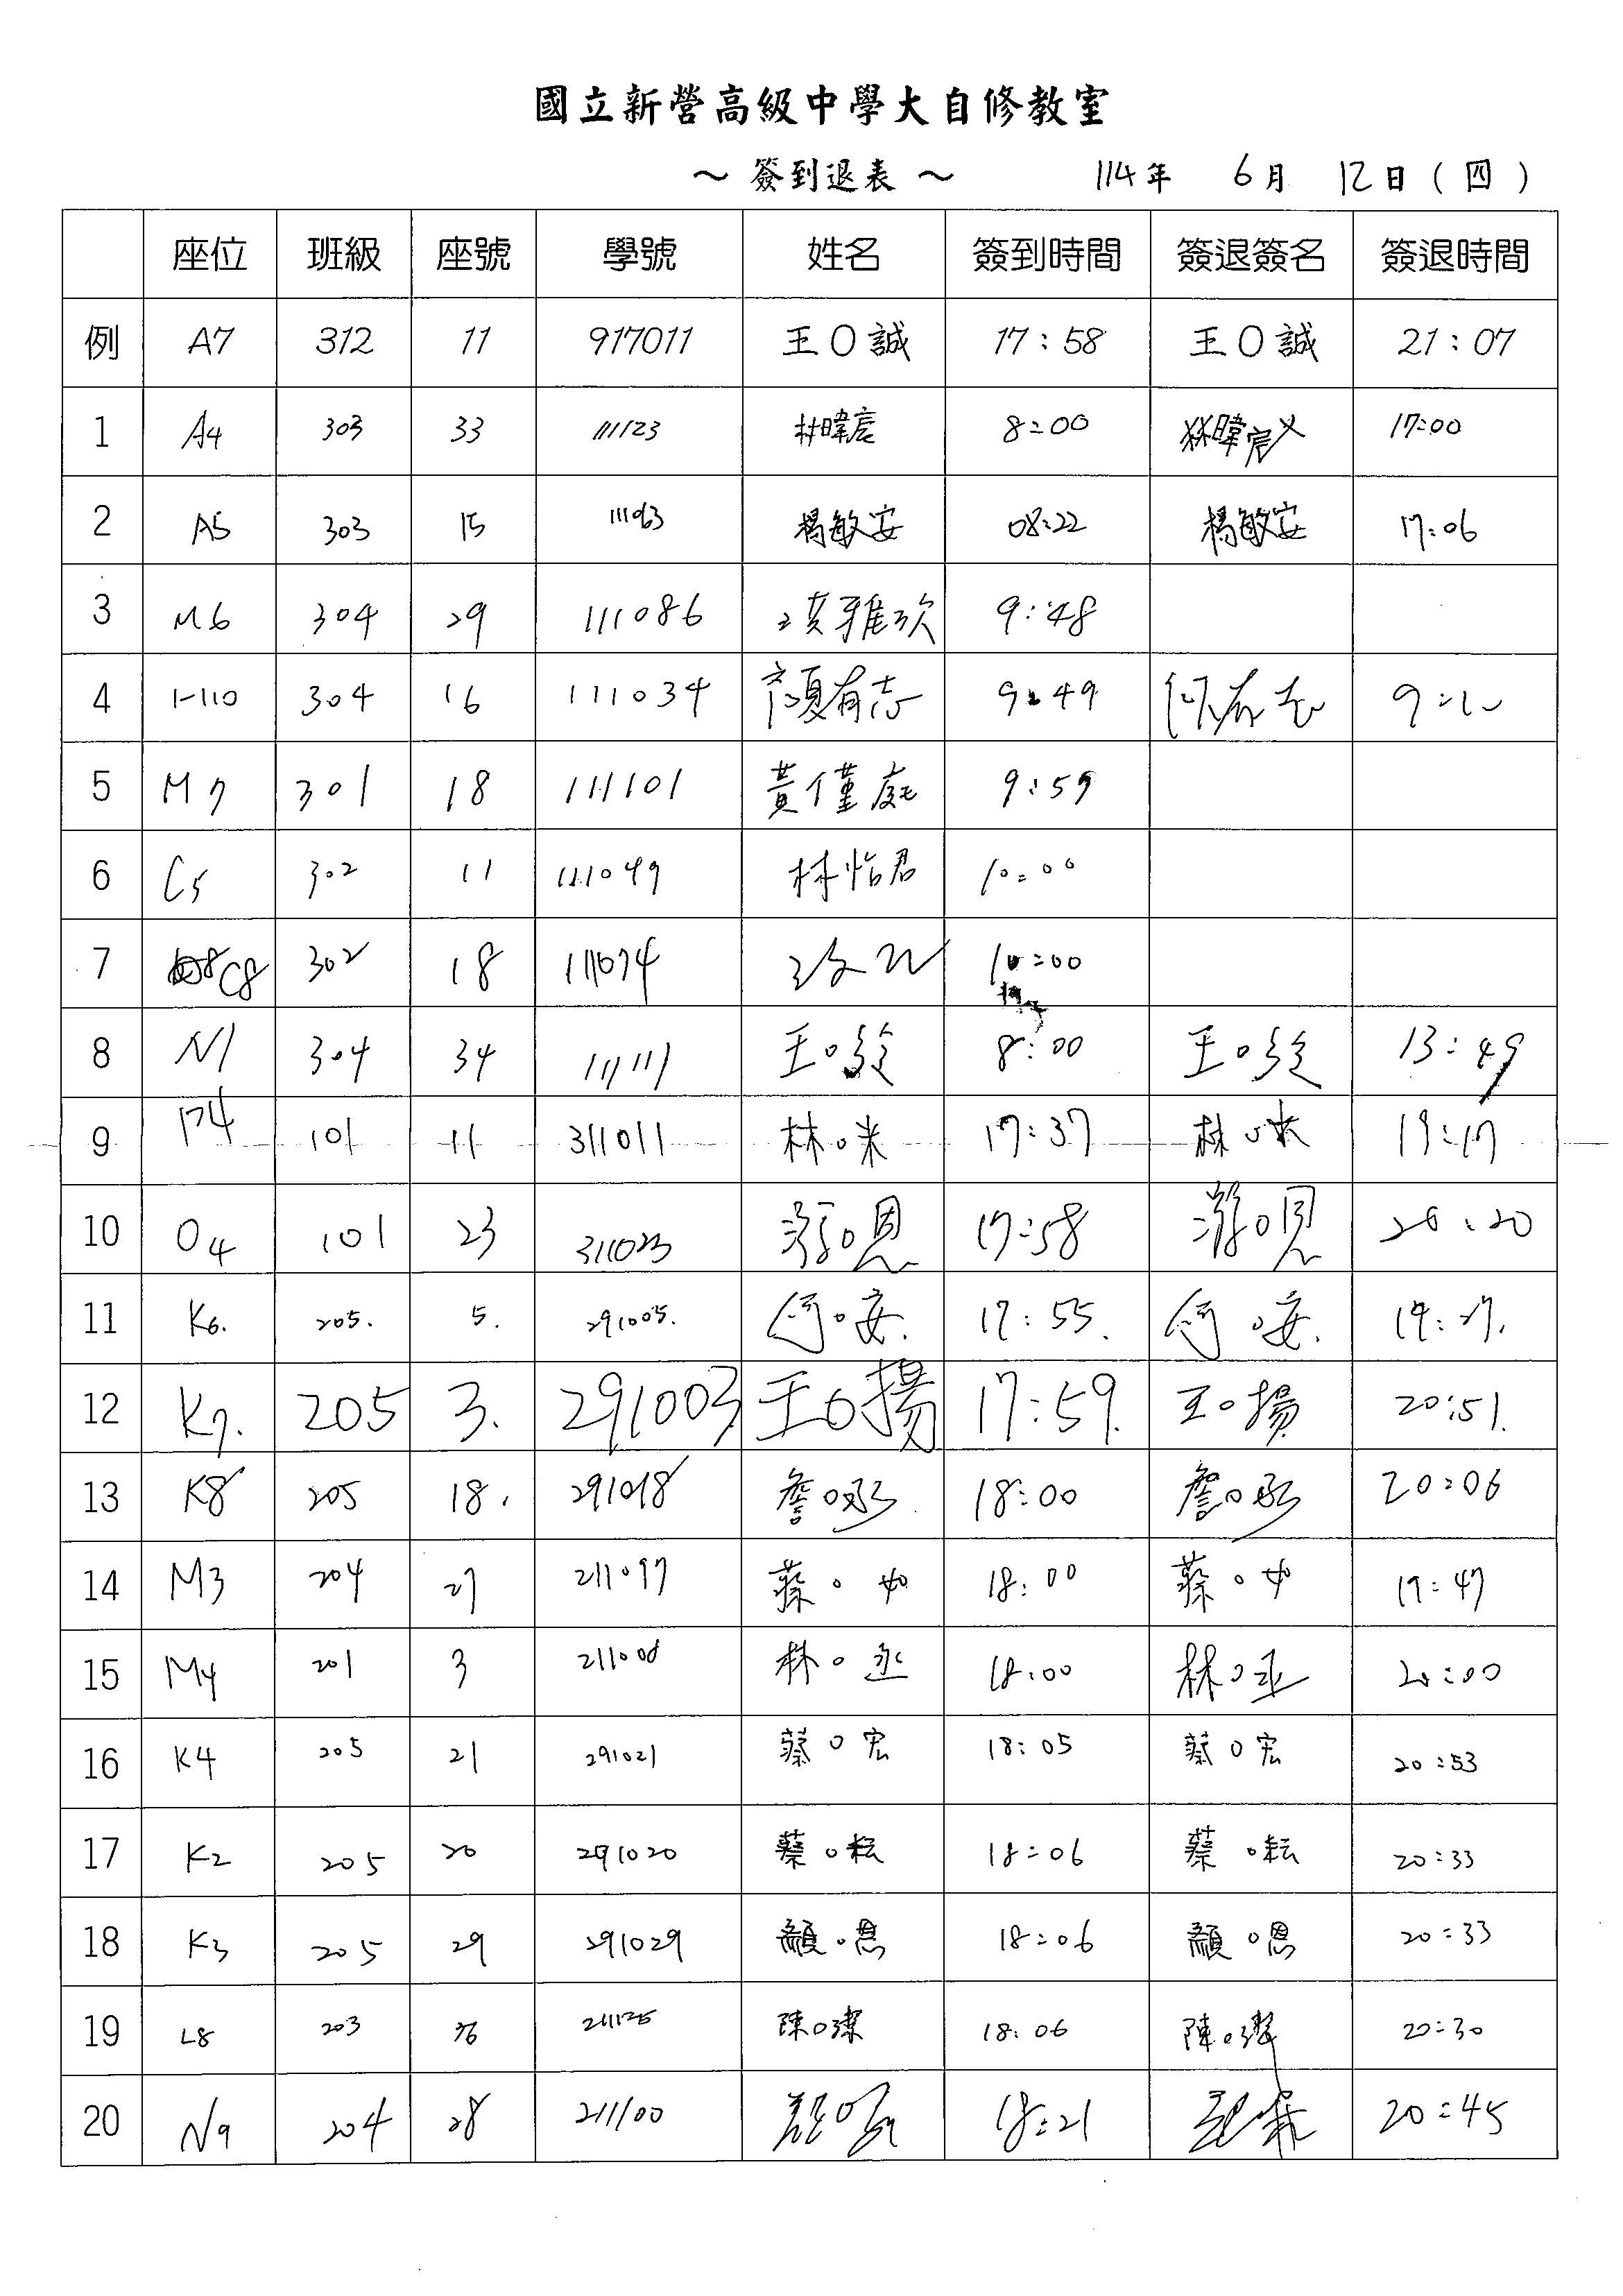 國立新營高級中學大自修教室
～ 簽到退表 ～ 114年 6月 12日(四)
座位 班級 座號 學號 姓名 簽到時間 簽退簽名 簽退時間
例 A7 312 11 917011 王O誠 17:58 王O誠 21:07
1 A4 303 33 111123 林暐宸 8:00 林暐宸 17:00
2 A5 303 15 111063 楊敏安 08:22 楊敏安 17:06
3 M6 304 29 111086 9:48
4 304 16 111034 顏有志 9:49
5 M7 301 18 111101 黃僅庭 9:59
6 C5 302 11 111049 林怡君 10:00
7 C8 302 18 111074 10:00
8 N1 304 34 111111 8:00 13:49
9 P4 101 11 311011 林O咪 17:37 林O咪 19:17
10 O4 101 23 311023 游O恩 17:58 游O恩 20:20
11 K6. 205. 5. 291005. 何O安. 17:55. 何O安. 19:27.
12 K7. 205 3. 291003 王O揚 17:59. 王O揚 20:51.
13 K8 205 18. 291018 詹O 18:00 詹O 20:06
14 M3 204 27 211097 蔡O如 18:00 蔡O如 19:47
15 M4 201 3 林O丞 18:00 林O丞 20:00
16 K4 205 21 291021 蔡O宏 18:05 蔡O宏 20:53
17 K2 205 20 291020 蔡O耘 18:06 蔡O耘 20:33
18 K3 205 29 291029 顏O恩 18:06 顏O恩 20:33
19 L8 203 陳O潔 18:06 陳O潔 20:30
20 N9 204 28 211100 18:21 20:45